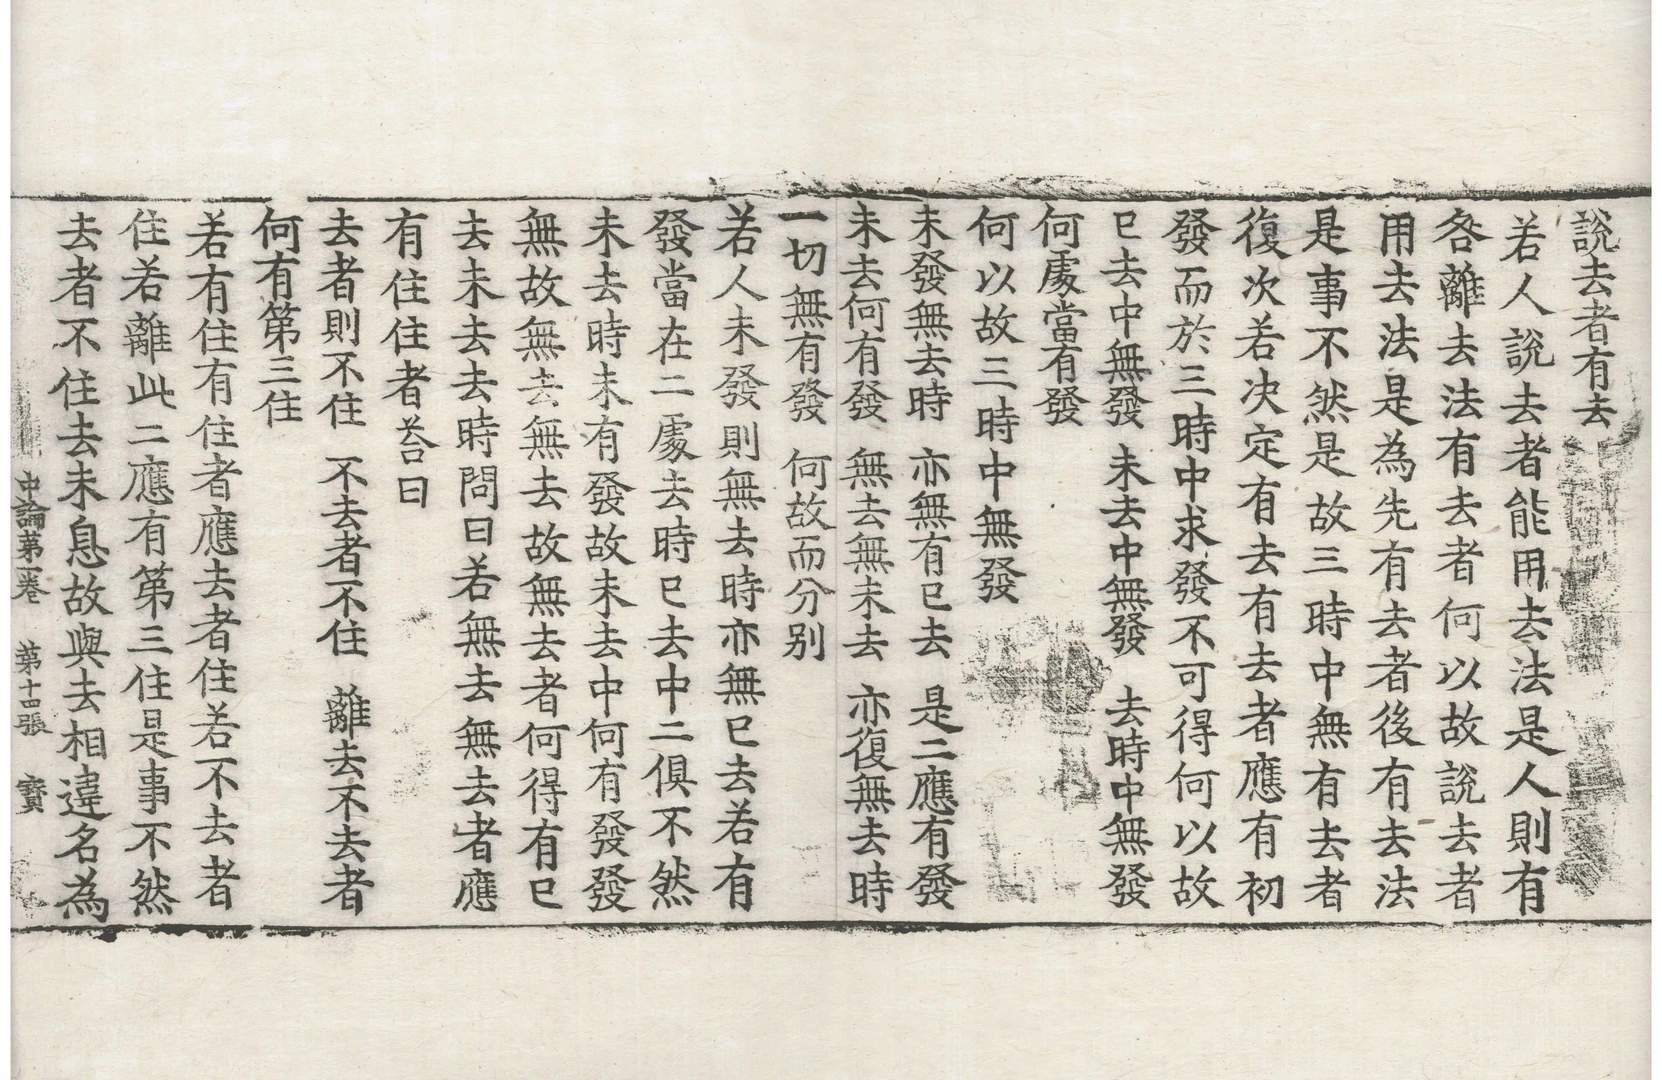 說去者有去
若人說去者能用去法是人則有
咎離去法有去者何以故說去者
用去法是為先有去者後有去法
是事不然是故三時中無有去者
復次若决定有去有去者應有初
發而於三時中求發不可得何以故
已去中無發 未去中無發 去時中無發
何處當有發
何以故三時中無發
未發無去時 亦無有已去 是二應有發
未去何有發 無去無未去 亦復無去時
一切無有發 何故而分别
若人未發則無去時亦無已去若有
發當在二處去時已去中二俱不然
未去時未有發故未去中何有發發
無故無去無去故無去者何得有已
去未去去時問曰若無去無去者應
有住住者荅曰
去者則不住 不去者不住 離去不去者
何有第三住
若有住有住者應去者住若不去者
住若離此二應有第三住是事不然
去者不住去未息故與去相違名為
中論第一卷 第十四張 寳